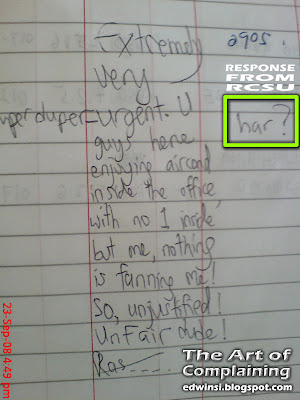 Extremely
very
uper duper - urgent. U
guys here
enjoying aircond
inside the office,
with no 1 inside
but me, nothing
is fanning me!
So, unjustified!
Unfair dude!
2905.
RESPONSE
FROM
RCSU
har?
23-Sep-08 4:49 pm
The Art of
Complaining
edwinsi.blogspot.com